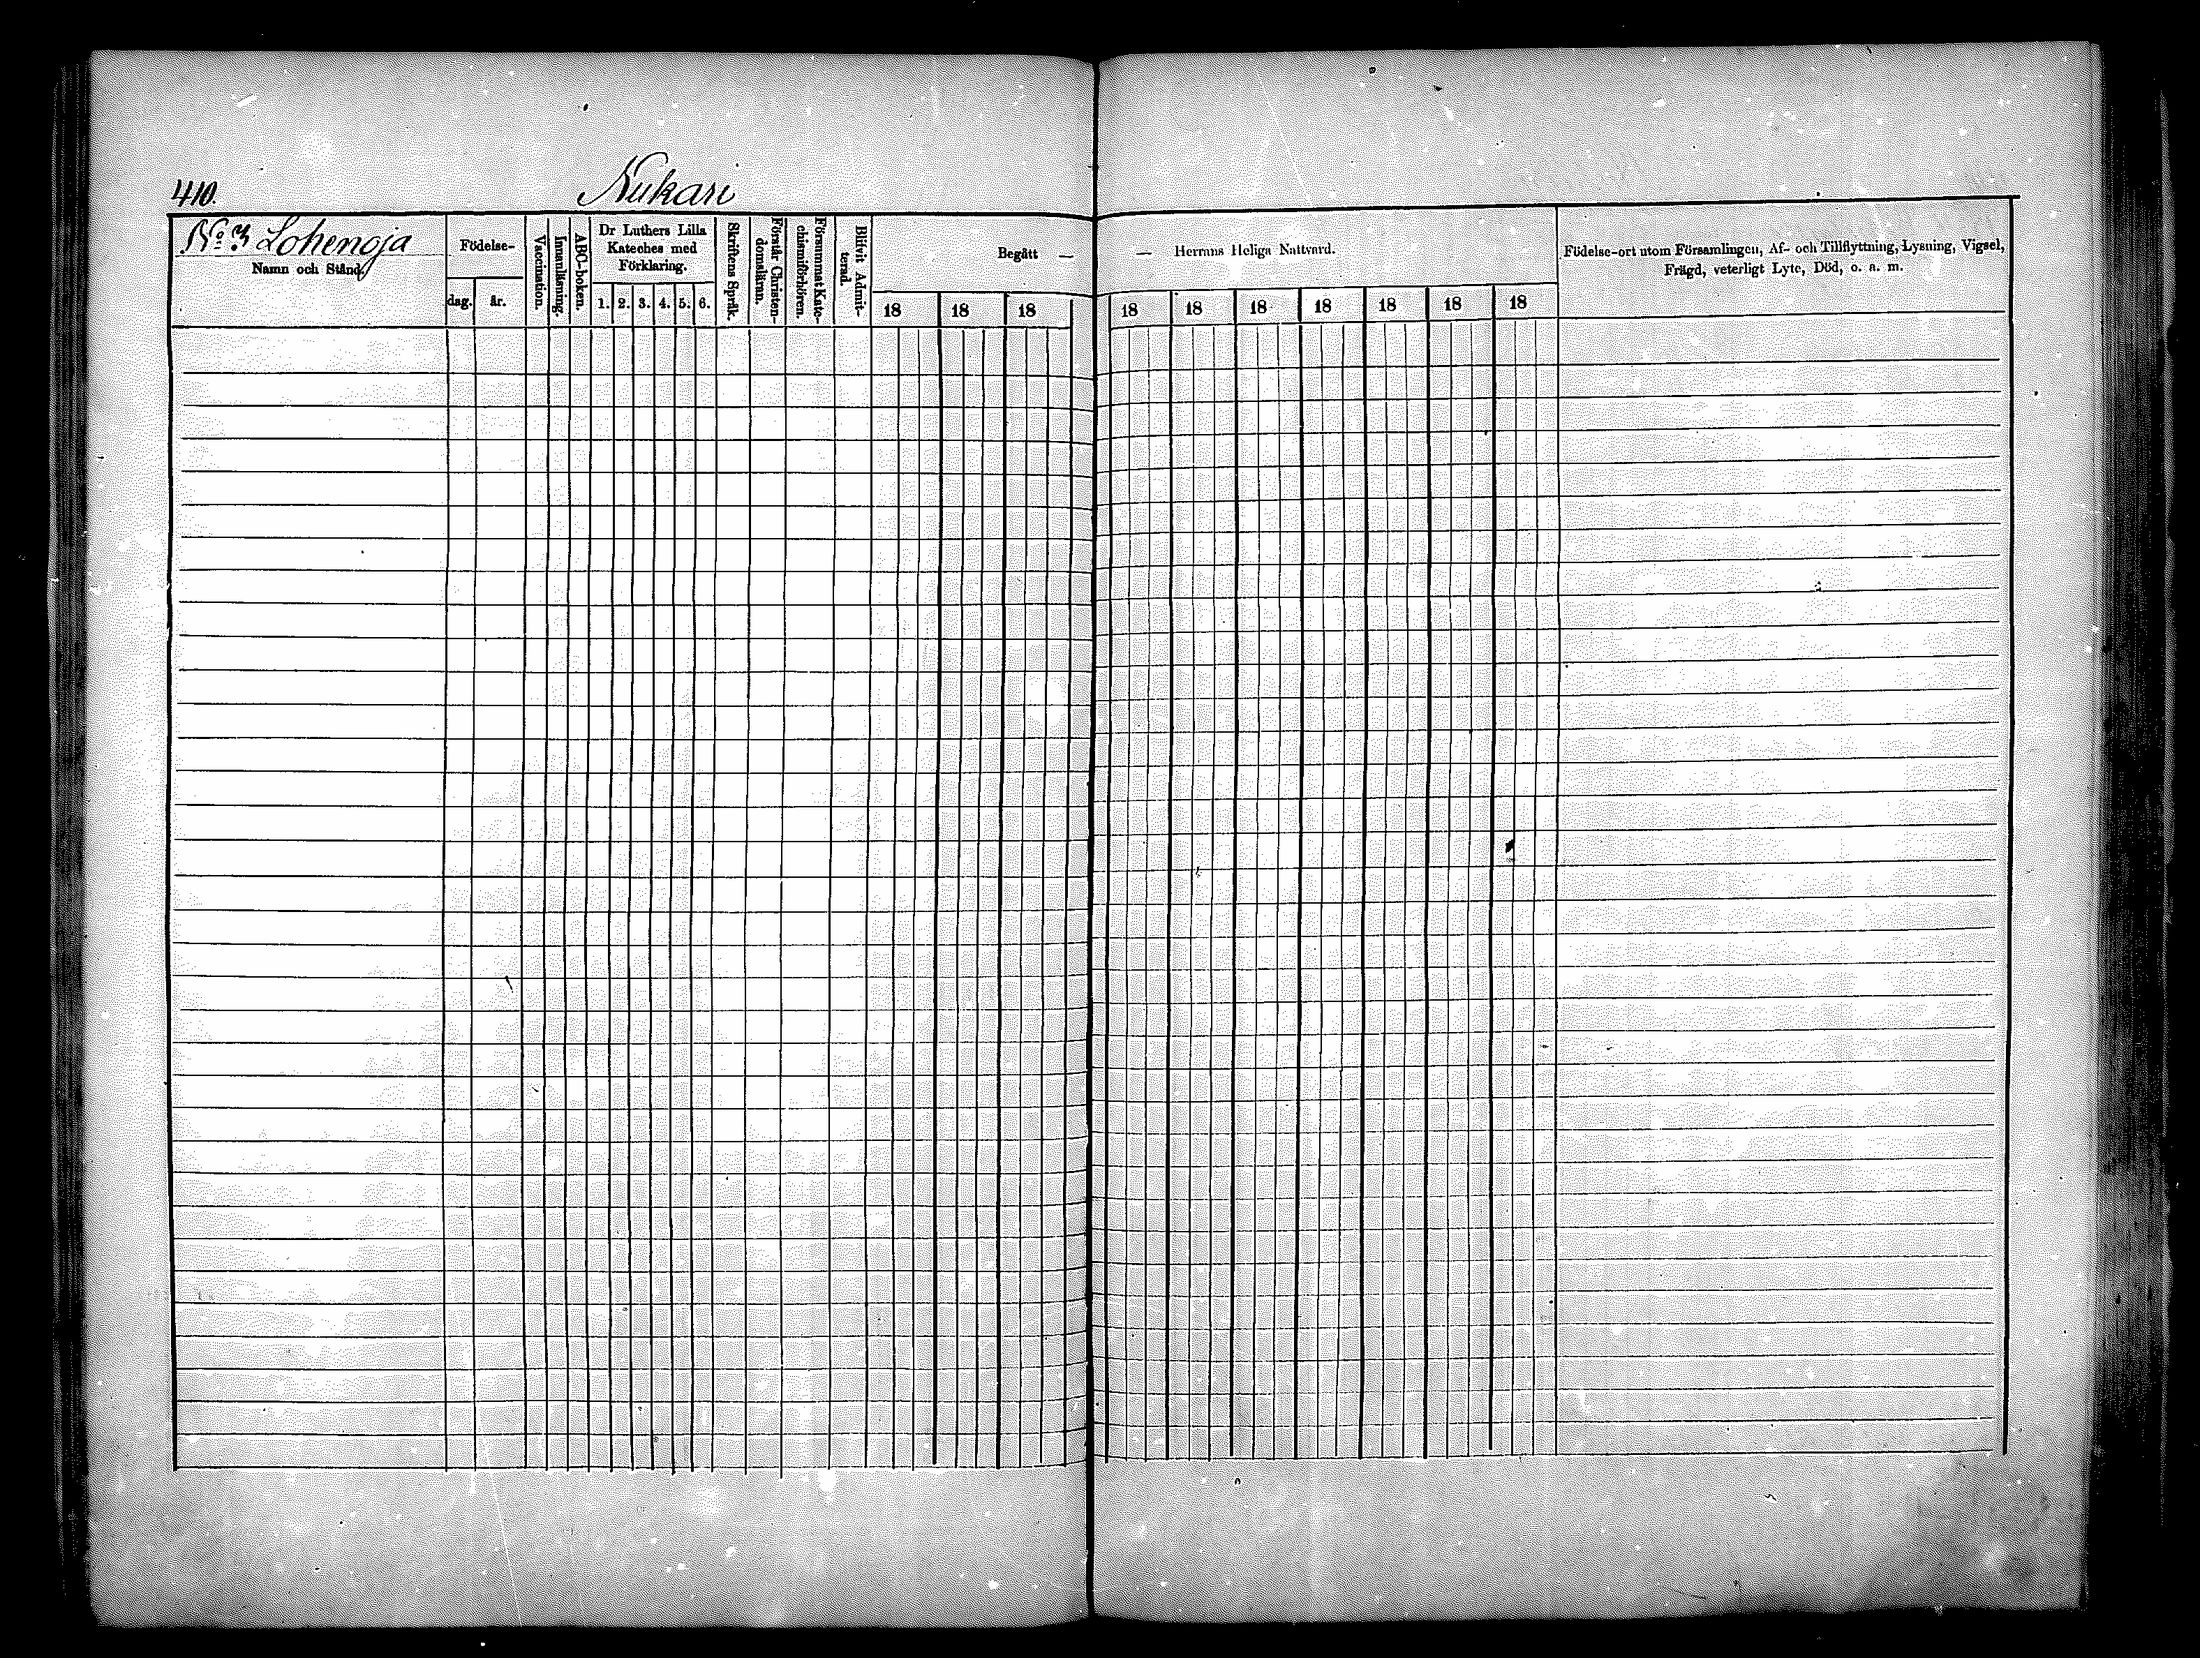 410.
Nukari
No 3 Lohenoja
Namn och Stånd.
Födelse-
dag.
år.
Vaccination.
Innanläsning.
ABC-boken.
Dr Luthers Lilla
Kateches med
Förklaring.
1. 2. 3. 4. 5. 6.
Skriftens Språk.
Förstår Christen-
domsläran.
Försummat Kate-
chismiförhören.
Blifvit Admit-
terad.
Begått —
18 18 18
— Herrans Heliga Nattvard.
18 18 18 18 18 18 18
Födelse-ort utom Församlingen, Af- och Tillflyttning, Lysning, Vigsel,
Frägd, veterligt Lyte, Död, o. s. m.